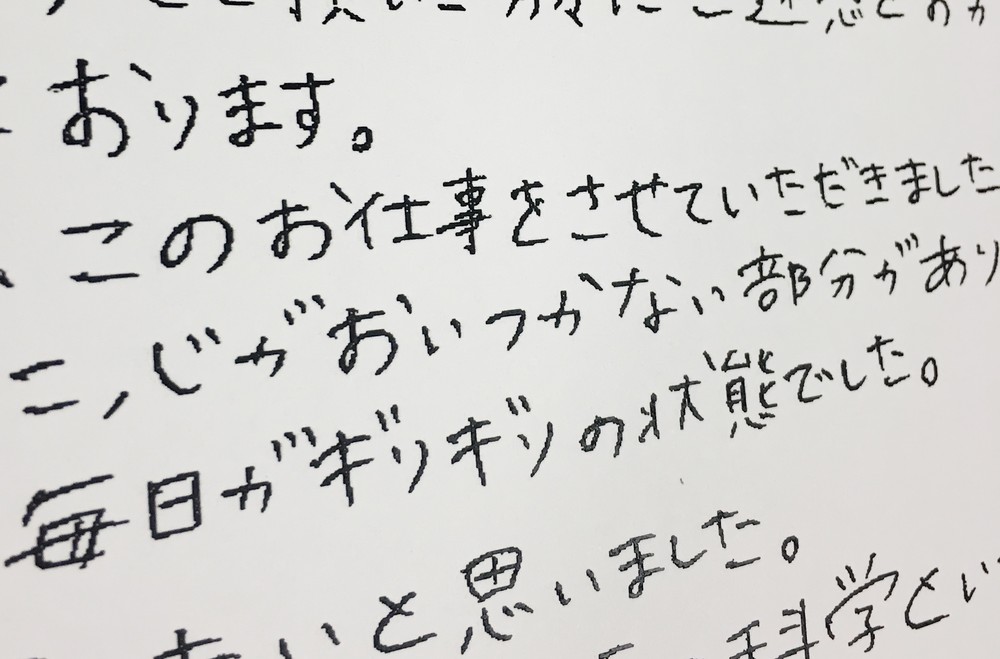 おります。
、このお仕事をさせていただきました
こ,じがおいつかない部分があり
毎日がギリギリの状態でした。
いと思いました。
科学とい